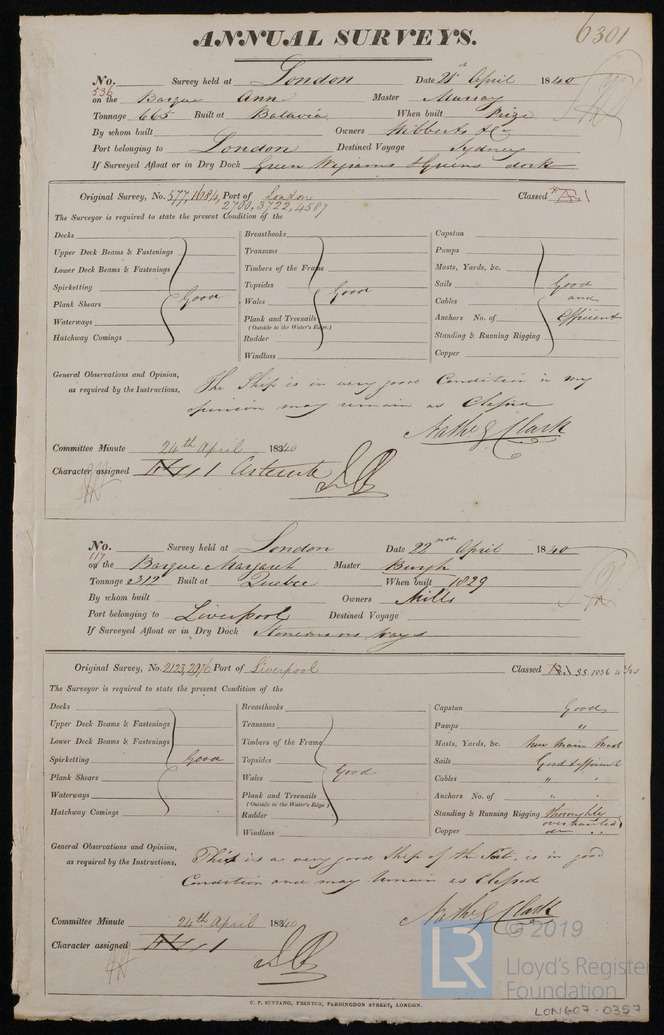 6301
ANNUAL SURVEYS.
No. 536 Survey held at London Date 21st April 1840
on the Barque Ann Master Murray
Tonnage 665 Built at Batavia When built Prize
By whom built Owners Hibberts & Co
Port belonging to London Destined Voyage Sydney
If Surveyed Afloat or in Dry Dock Green Wigrams & Greens dock
Original Survey, No. 577, 1684, Port of London Classed
2700, 3722, 4587
The Surveyor is required to state the present Condition of the
Decks
Upper Deck Beams & Fastenings
Lower Deck Beams & Fastenings
Spirketting
Plank Shears
Waterways
Hatchway Comings
Good
Breasthooks
Transoms
Timbers of the Frame
Topsides
Wales
Plank and Treenails
(Outside to the Water's Edge.)
Rudder
Windlass
Good
Capstan
Pumps
Masts, Yards, &c.
Sails
Cables
Anchors No. of
Standing & Running Rigging
Copper
Good
and
efficient
General Observations and Opinion,
as required by the Instructions,
The Ship is in very good Condition in my
opinion may remain as Classed
Nathl. G Clark
Committee Minute 24th April 1840
Character assigned 1 Asterisk
No. 117 Survey held at London Date 22nd April 1840
on the Barque Margaret Master Burgh
Tonnage 312 Built at Quebec When built 1829
By whom built Owners Mills
Port belonging to Liverpool Destined Voyage
If Surveyed Afloat or in Dry Dock Stonemans Ways
Original Survey, No. 2123, 2976 Port of Liverpool Classed SS. 1836
The Surveyor is required to state the present Condition of the
Decks
Upper Deck Beams & Fastenings
Lower Deck Beams & Fastenings
Spirketting
Plank Shears
Waterways
Hatchway Comings
Good
Breasthooks
Transoms
Timbers of the Frame
Topsides
Wales
Plank and Treenails
(Outside to the Water's Edge.)
Rudder
Windlass
Good
Capstan Good
Pumps "
Masts, Yards, &c. New Main Mast
Sails Good & efficient
Cables " "
Anchors No. of " "
Standing & Running Rigging thoroughly
overhauled
Copper do " "
General Observations and Opinion,
as required by the Instructions,
This is a very good Ship of the Sort, is in good
Condition and may remain as Classed
Nathl. G Clark
Committee Minute 24th April 1840
Character assigned 1
C. F. SEYFANG, PRINTER, FARRINGDON STREET, LONDON.
LR © 2019
Lloyd's Register
Foundation
LON607-0357